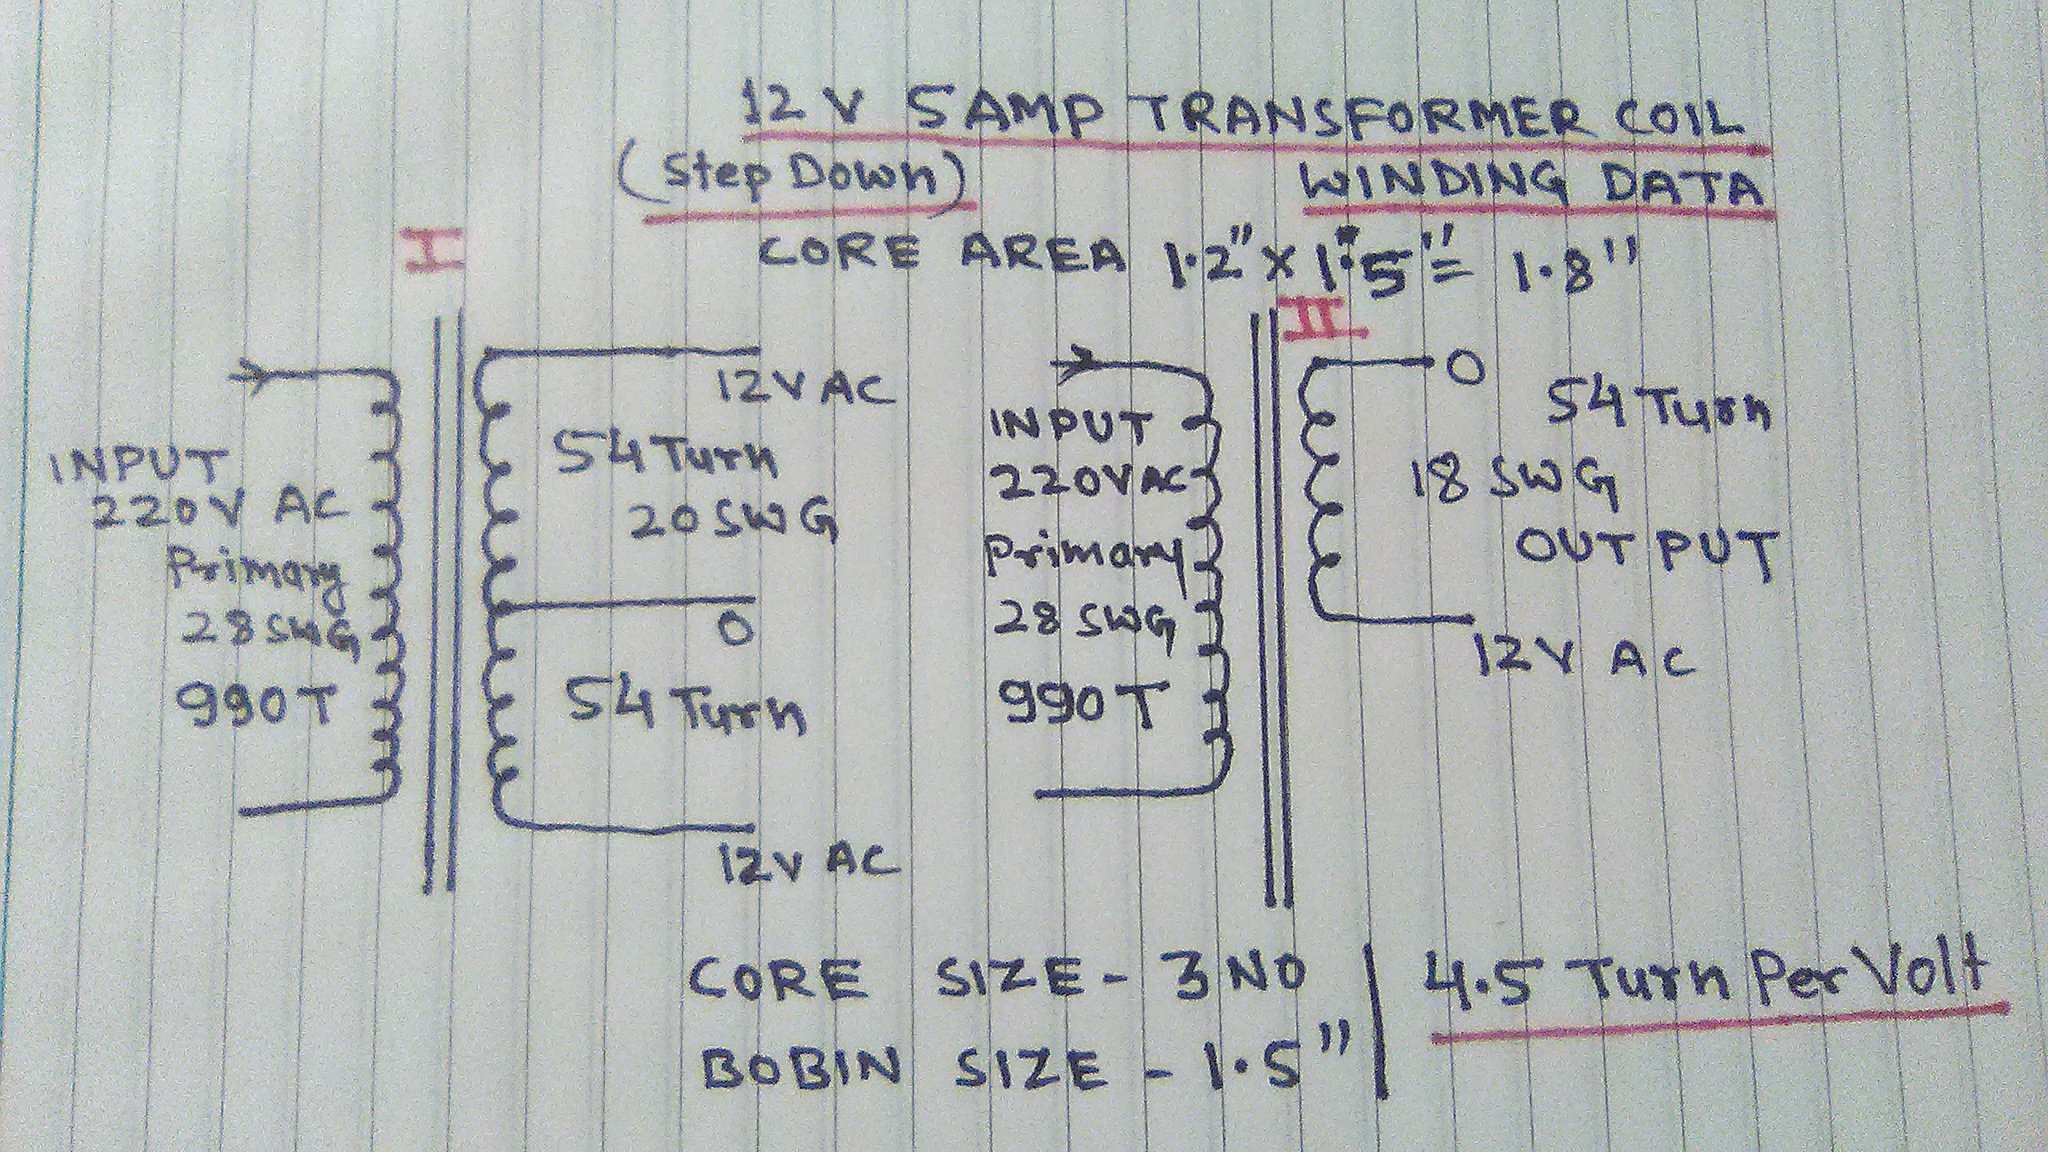 12 V 5 AMP TRANSFORMER COIL
(Step Down) WINDING DATA
CORE AREA 1.2" x 1.5" = 1.8"
I
II
12V AC
54 Turn
20 SWG
0
54 Turn
12V AC
INPUT
220V AC
Primary
28 SWG
990T
INPUT
220V AC
Primary
28 SWG
990T
0
54 Turn
18 SWG
OUTPUT
12V AC
CORE SIZE - 3 NO
BOBIN SIZE - 1.5"
4.5 Turn Per Volt